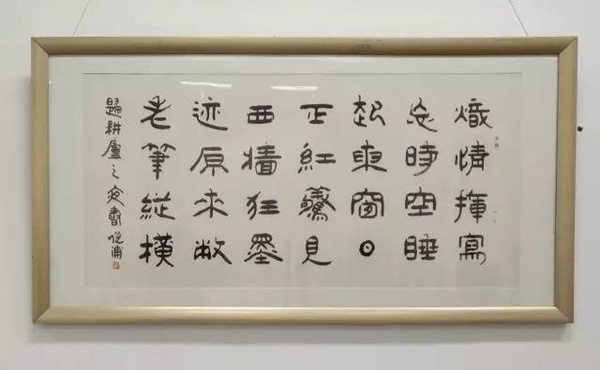 熾情揮寫
忘時空睡
起東窗日
正紅驚見
西牆狂墨
迹原來敝
老筆縱橫
耕廬之夜書